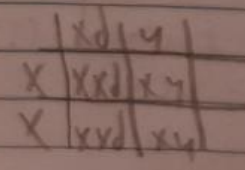 xd y
X xxd xy
X xxd xy